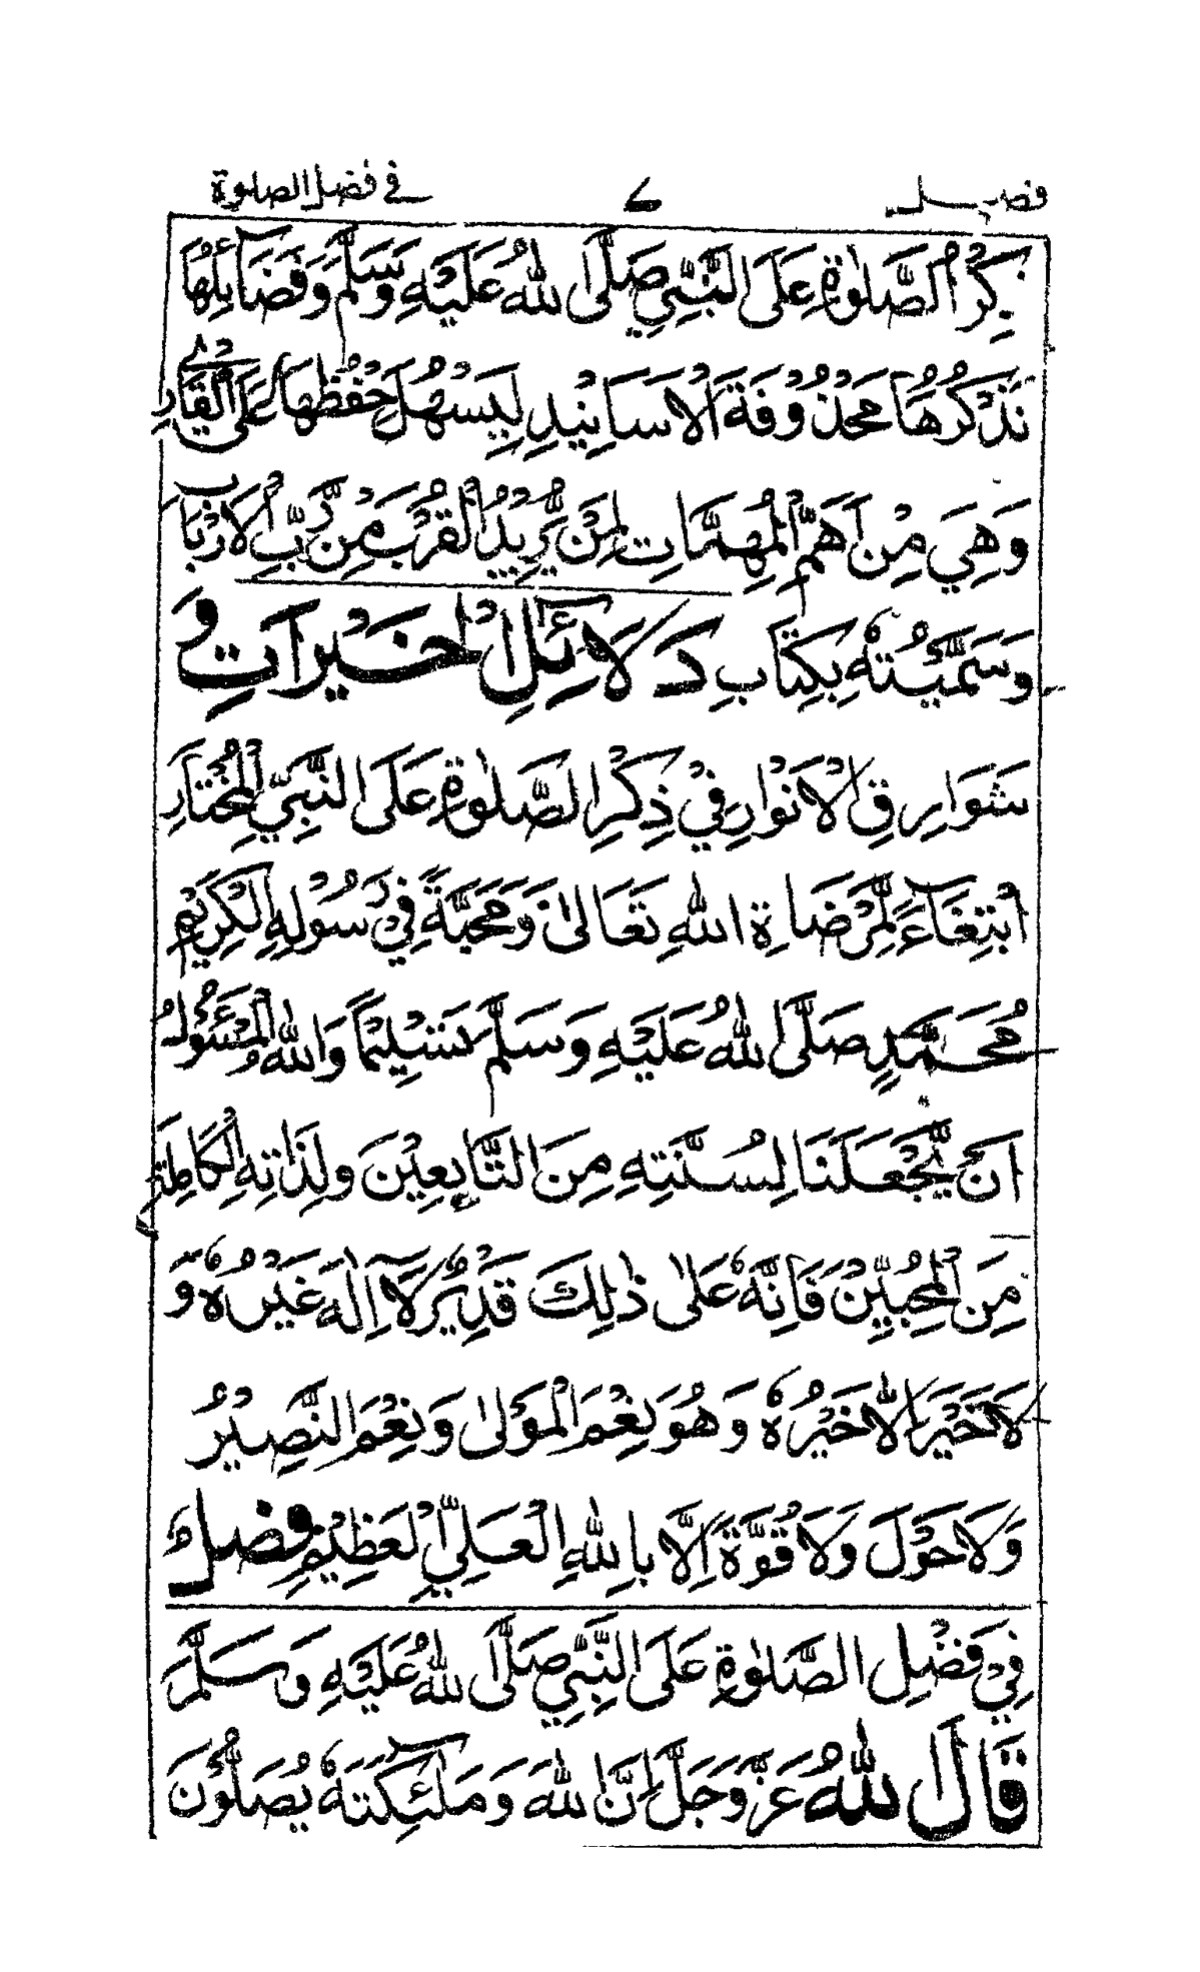 فصـــل ۷ في فضل الصلوة
ذِكْرُ الصَّلٰوةِ عَلَى النَّبِيِّ صَلَّى اللّٰهُ عَلَيْهِ وَسَلَّمَ وَفَضَآئِلُهَا
نَذْكُرُهَا مَحْذُوْفَةَ الْاَسَانِيْدِ لِيَسْهُلَ حِفْظُهَا عَلَى الْقَارِئِ
وَهِيَ مِنْ اَهَمِّ الْمُهِمَّاتِ لِمَنْ يُّرِيْدُ الْقُرْبَ مِنْ رَّبِّ الْاَرْبَابِ
وَسَمَّيْتُهٗ بِكِتَابِ دَلَآئِلِ الْخَيْرَاتِ وَ
شَوَارِقِ الْاَنْوَارِ فِيْ ذِكْرِ الصَّلٰوةِ عَلَى النَّبِيِّ الْمُخْتَارِ
ابْتِغَآءً لِّمَرْضَاةِ اللّٰهِ تَعَالٰى وَمَحَبَّةً فِيْ رَسُوْلِهِ الْكَرِيْمِ
مُحَمَّدٍ صَلَّى اللّٰهُ عَلَيْهِ وَسَلَّمَ تَسْلِيْمًا وَاللّٰهُ الْمَسْئُوْلُ
اَنْ يَّجْعَلَنَا لِسُنَّتِهٖ مِنَ التَّابِعِيْنَ وَلِذَاتِهِ الْكَامِلَةِ
مِنَ الْمُحِبِّيْنَ فَاِنَّهٗ عَلٰى ذٰلِكَ قَدِيْرٌ لَآ اِلٰهَ غَيْرُهٗ وَ
لَا خَيْرَ اِلَّا خَيْرُهٗ وَهُوَ نِعْمَ الْمَوْلٰى وَنِعْمَ النَّصِيْرُ
وَلَا حَوْلَ وَلَا قُوَّةَ اِلَّا بِاللّٰهِ الْعَلِيِّ الْعَظِيْمِ فَصْلٌ
فِيْ فَضْلِ الصَّلٰوةِ عَلَى النَّبِيِّ صَلَّى اللّٰهُ عَلَيْهِ وَسَلَّمَ
قَالَ اللّٰهُ عَزَّ وَجَلَّ اِنَّ اللّٰهَ وَمَلٰٓئِكَتَهٗ يُصَلُّوْنَ